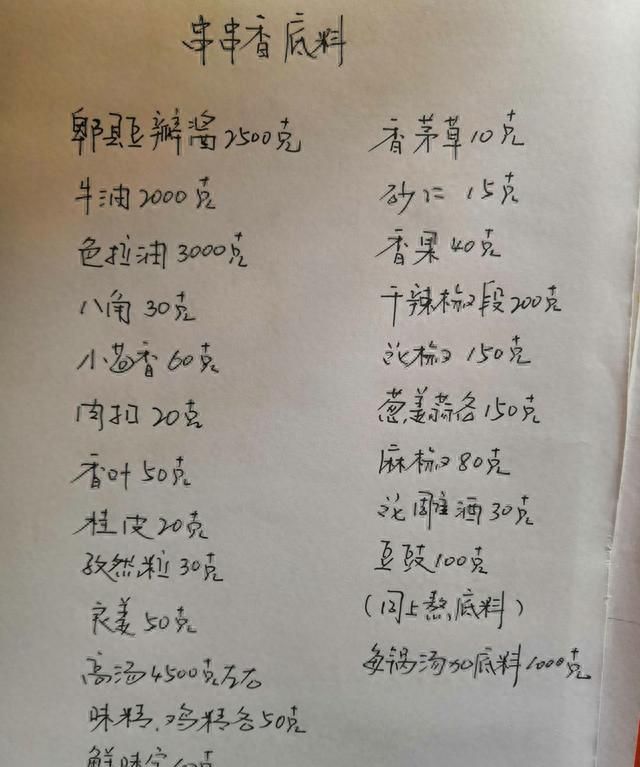 串串香底料
郫县豆瓣酱2500克
牛油2000克
色拉油3000克
八角30克
小茴香60克
肉扣20克
香叶50克
桂皮20克
孜然粒30克
良姜50克
高汤4500克左右
味精、鸡精各50克
鲜味宝
香茅草10克
砂仁15克
香果40克
干辣椒段200克
花椒150克
葱姜蒜各150克
麻椒80克
花雕酒30克
豆豉100克
(同上熬底料)
每锅汤加底料1000克